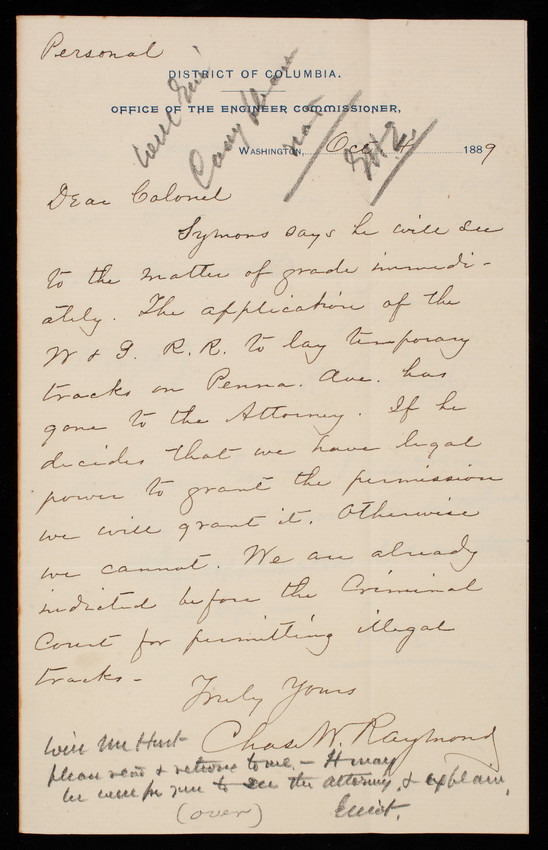 Personal
DISTRICT OF COLUMBIA.
OFFICE OF THE ENGINEER COMMISSIONER,
WASHINGTON, Oct 4 1889
Dear Colonel
Symons says he will see
to the matter of grade immedi-
ately. The application of the
W & G. R.R. to lay temporary
tracks on Penna. Ave. has
gone to the Attorney. If he
decides that we have legal
power to grant the permission
we will grant it. Otherwise
we cannot. We are already
indicted before the Criminal
Court for permitting illegal
tracks -
Truly Yours
Chas. W. Raymond
Will Mr
please read & return to me. - It may
be well for you to see the attorney & explain.
(over)